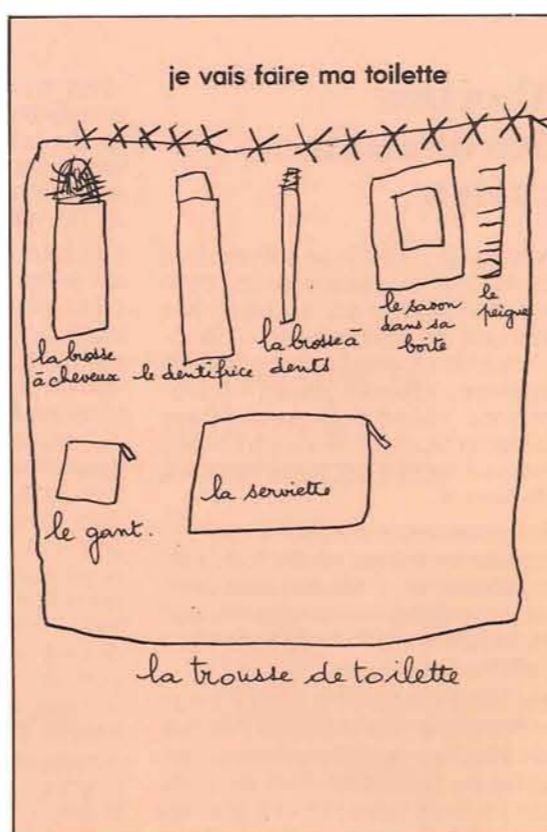 je vais faire ma toilette
la brosse
à cheveux
le dentifrice
la brosse à
dents
le savon
dans sa
boîte
le
peigne
le gant.
la serviette
la trousse de toilette